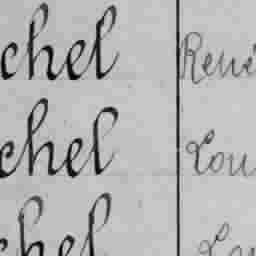 chel René
chel Lou
chel